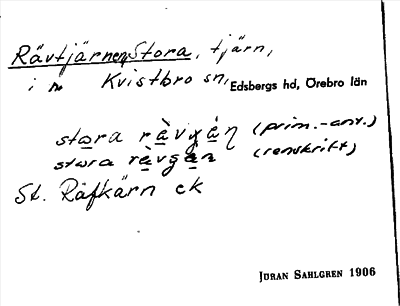 Rävtjärnen, Stora, tjärn,
i Kvistbro sn, Edsbergs hd, Örebro län
stɷra rä̀vgá̀n (prim.-ant.)
stɷra rä̀vgä̀n (renskrift)
St. Räfkärn ek
JÖRAN SAHLGREN 1906